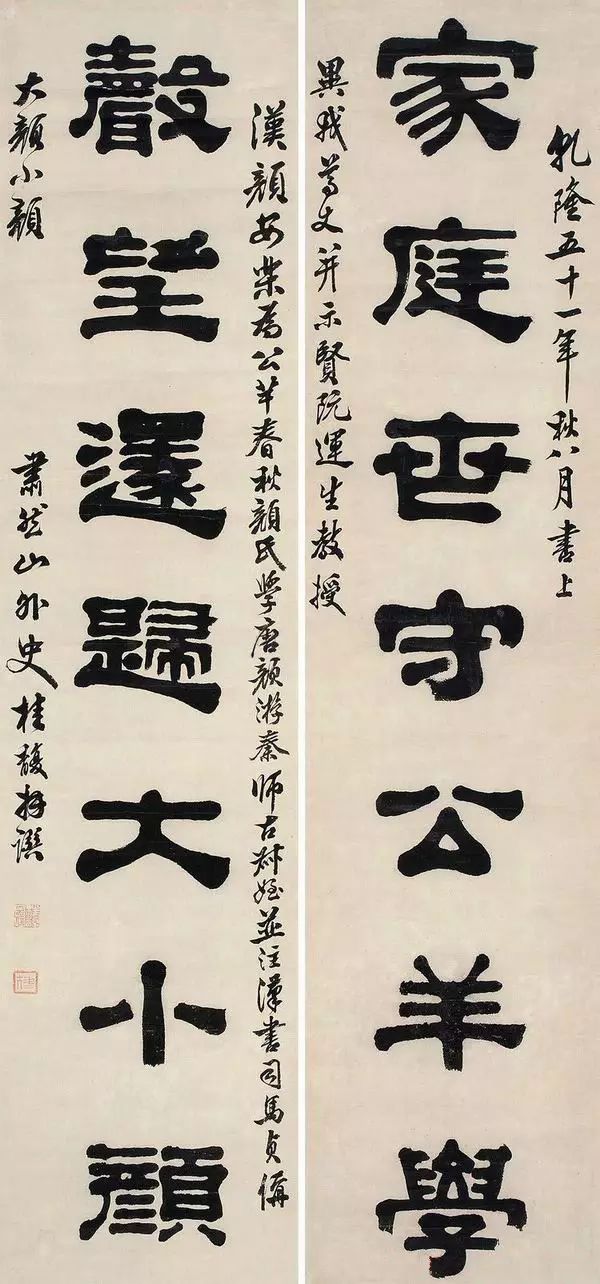 乾隆五十一年秋八月書上
家庭世守公羊學
異我尊丈并示賢阮運生教授
漢顏安樂為公羊春秋顏氏學唐顏游秦師古叔姪並注漢書司馬貞偁
聲望還歸大小顏
大顏小顏
肅然山外史桂馥并譔